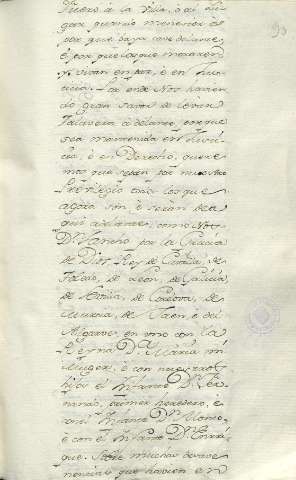 fuero à la Villa, ò al lu-
gar quando menester
per que vaya cave delante,
è por que los que moraren
y vivan en paz, è en Jus-
ticia. Por ende Nos havien-
do gran savor de levar
Talavera adelante, porque
sea mantenida en Justi-
cia, è en Derecho, quere-
mos que sepan por nuestro
Privilegio todos los que
agora son è seran de a-
qui adelante, como Nos
Dn. Sancho por la Gracia
de Dios Rey de Castilla, de
Toledo, de Leon, de Galicia,
de Sevilla, de Cordova, de
Murcia, de Jaen, è del
Algarve, en uno con la
Reyna Dª. Maria mi
Muger, è con nuestros
hijos el Infante Dn. Fer-
nando, primer heredero, è
con el Infante Dn. Alonso,
è con el Infante Dn. Enrri-
que. Sobre muchas desave-
nencias que havien en